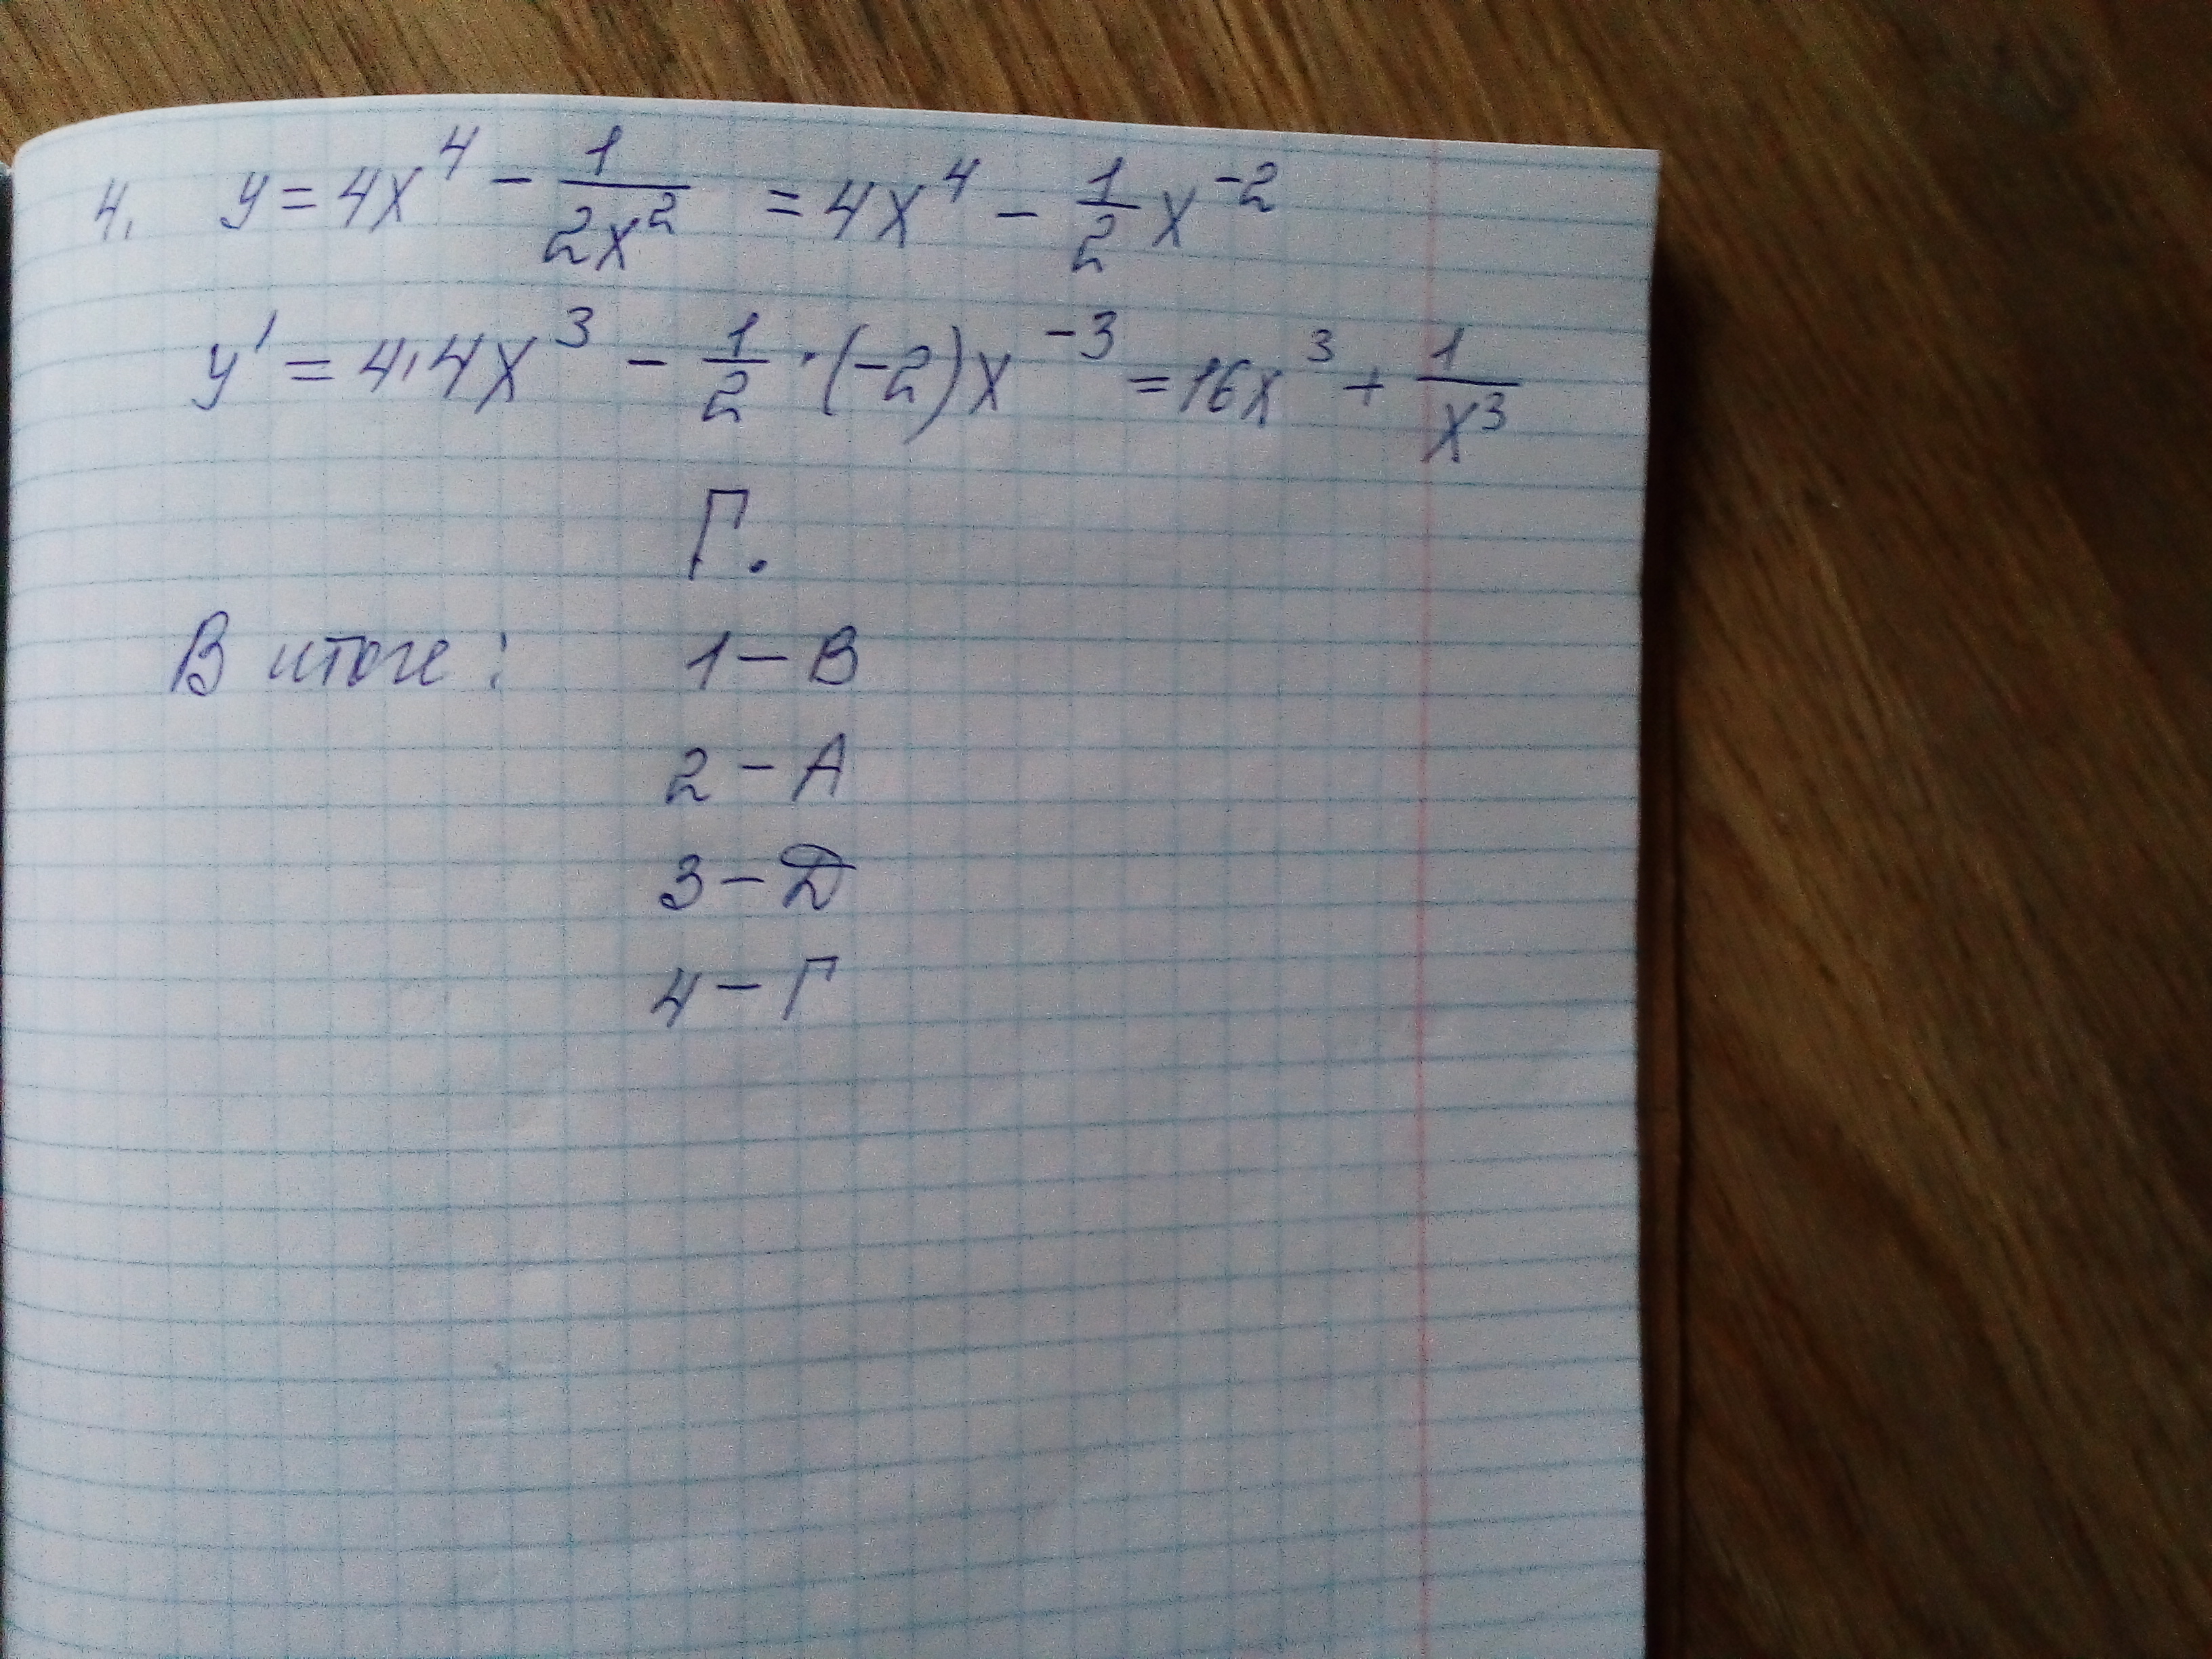 4. y = 4x⁴ - 1/(2x²) = 4x⁴ - 1/2 x⁻²
y' = 4·4x³ - 1/2 · (-2)x⁻³ = 16x³ + 1/x³
Г.
В итоге: 1 - В
2 - А
3 - Д
4 - Г